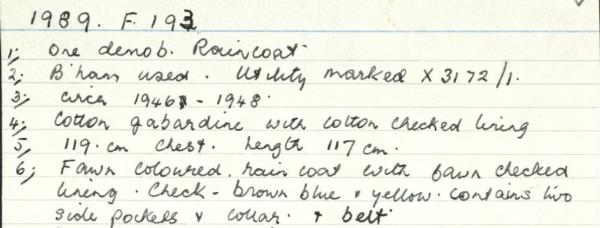 1989. F. 193
1; One demob. Raincoat
2; B'ham used. Utility marked X 3172/1.
3; circa 1946 - 1948.
4; Cotton gabardine with cotton checked lining
5, 119. cm chest. Length 117 cm.
6; Fawn coloured. rain coat with fawn checked
lining. Check - brown blue & yellow. contains two
side pockets & collar. & belt.